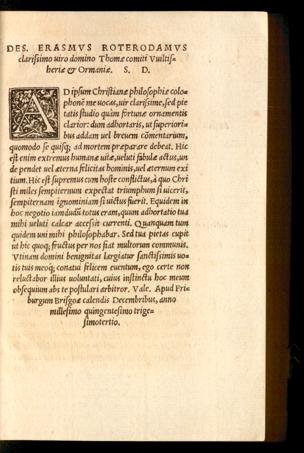 DES. ERASMVS ROTERODAMVS
clarissimo uiro domino Thomæ comiti Vuiltis-
heriæ & Ormaniæ. S. D.
AD ipsum Christianæ philosophiæ colo-
phonē me uocas, uir clarissime, sed pie
tatis studio quàm fortunæ ornamentis
clarior: dum adhortaris, ut superiori-
bus addam uel breuem cōmentarium,
quomodo se quisq; ad mortem præparare debeat. Hic
est enim extremus humanæ uitæ, ueluti fabulæ actus, un
de pendet uel æterna felicitas hominis, uel æternum exi
tium. Hic est supremus cum hoste conflictus, à quo Chri
sti miles sempiternum expectat triumphum si uicerit,
sempiternam ignominiam si uictus fuerit. Equidem in
hoc negotio iamdudū totus eram, quum adhortatio tua
mihi ueluti calcar accessit currenti. Quanquam tum
equidem uni mihi philosophabar. Sed tua pietas cupit
ut hic quoq; fructus per nos fiat multorum communis.
Vtinam domini benignitas largiatur sanctissimis uo-
tis tuis meoq́; conatui felicem euentum, ego certe non
reluctabor illius voluntati, cuius instinctu hoc meum
obsequium abs te postulari arbitror. Vale. Apud Fri-
burgum Brisgoæ calendis Decembribus, anno
millesimo quingentesimo trige-
simotertio.